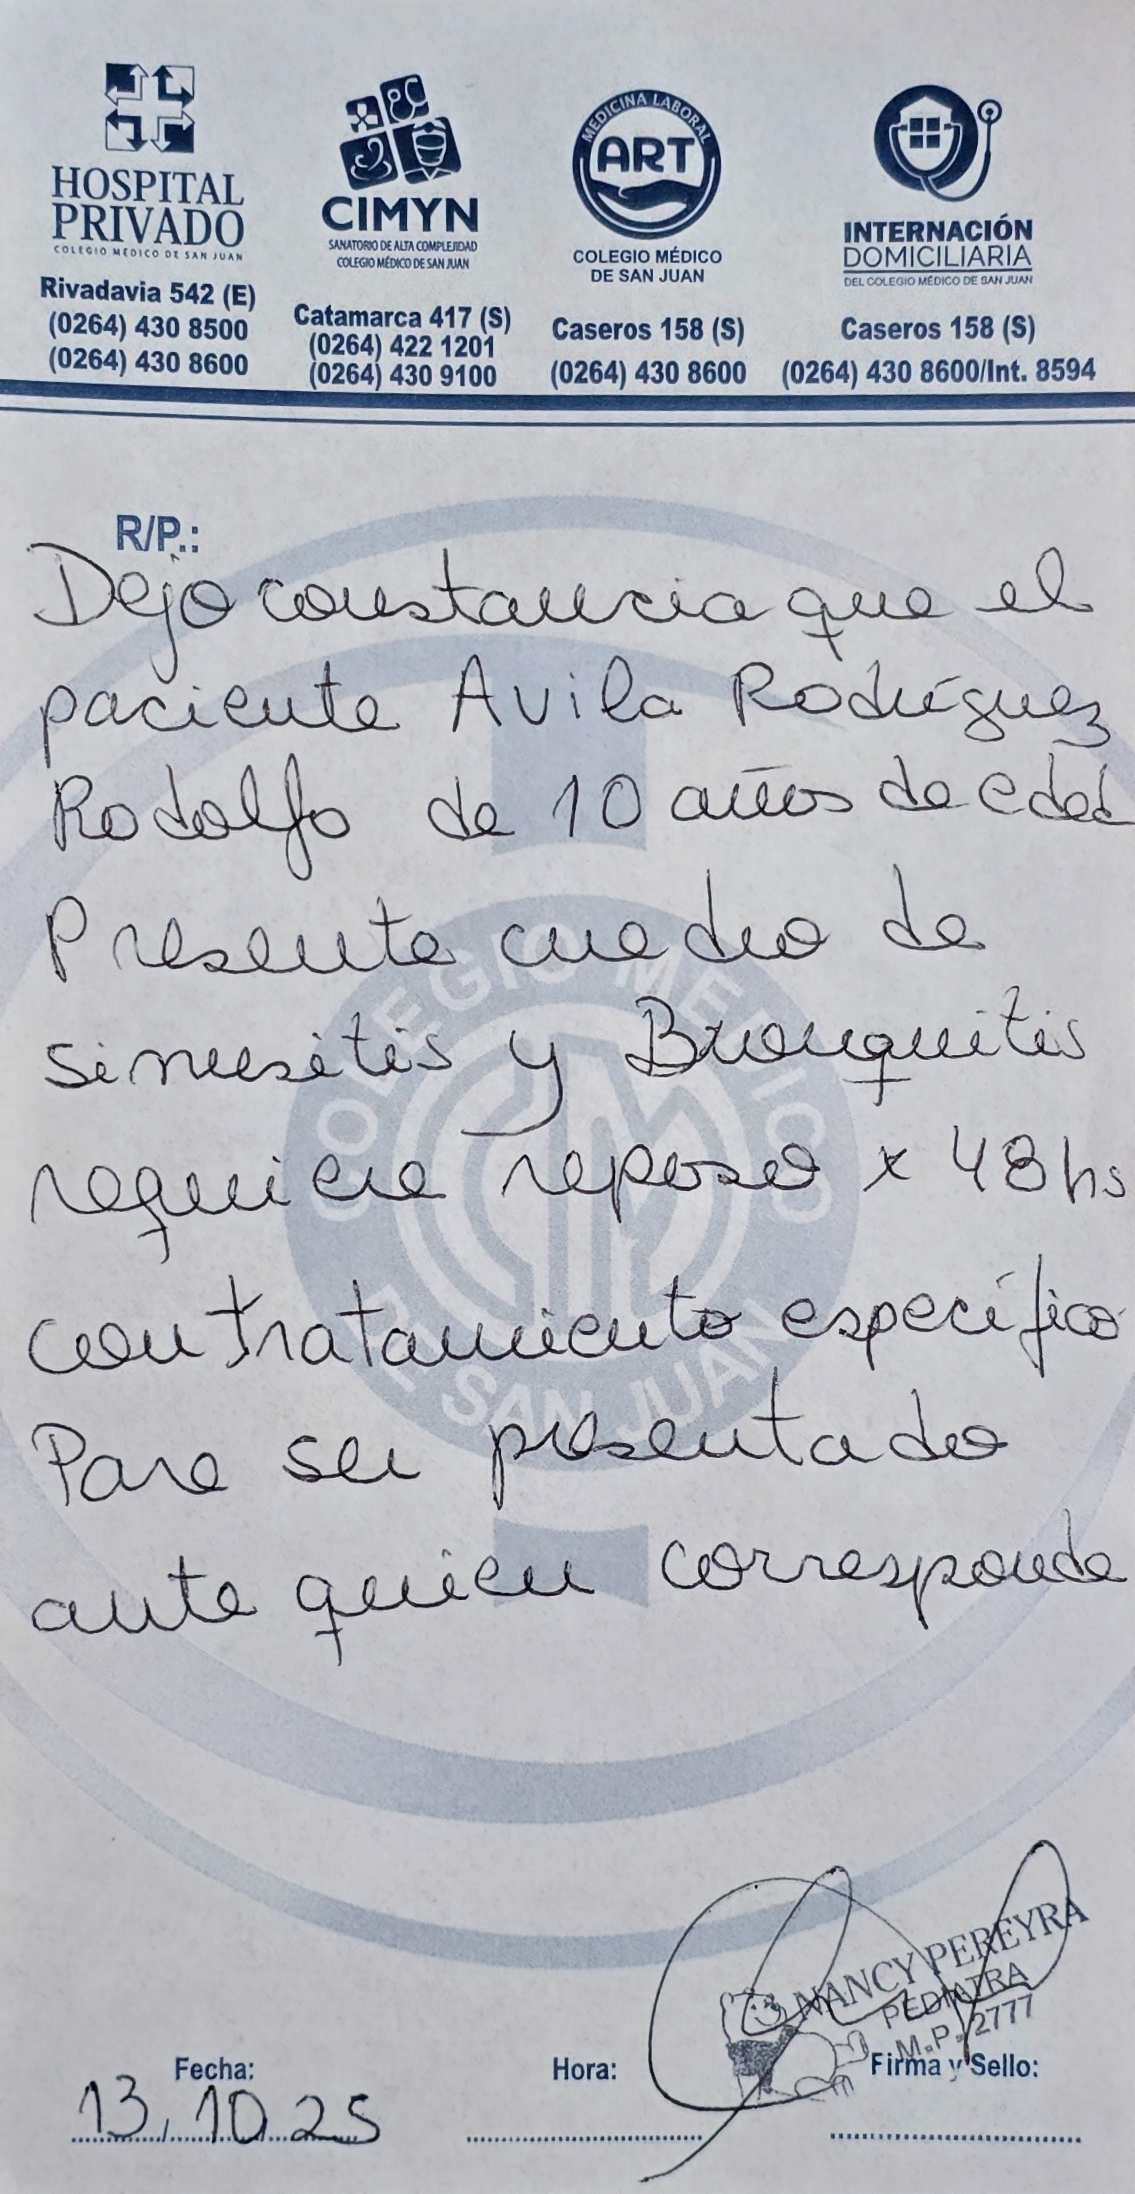 HOSPITAL
PRIVADO
COLEGIO MÉDICO DE SAN JUAN
Rivadavia 542 (E)
(0264) 430 8500
(0264) 430 8600
CIMYN
SANATORIO DE ALTA COMPLEJIDAD
COLEGIO MÉDICO DE SAN JUAN
Catamarca 417 (S)
(0264) 422 1201
(0264) 430 9100
MEDICINA LABORAL
ART
COLEGIO MÉDICO
DE SAN JUAN
Caseros 158 (S)
(0264) 430 8600
INTERNACIÓN
DOMICILIARIA
DEL COLEGIO MÉDICO DE SAN JUAN
Caseros 158 (S)
(0264) 430 8600/Int. 8594
R/P.:
Dejo constancia que el
paciente Avila Rodríguez
Rodolfo de 10 años de edad
Presenta cuadro de
sinusitis y Bronquitis
requiere reposo x 48hs
con tratamiento específico
Para ser presentado
ante quien corresponda
COLEGIO MEDICO
DE SAN JUAN
NANCY PEREYRA
PEDIATRA
M.P. 2777
Fecha:
13.10.25
Hora:
Firma y Sello: